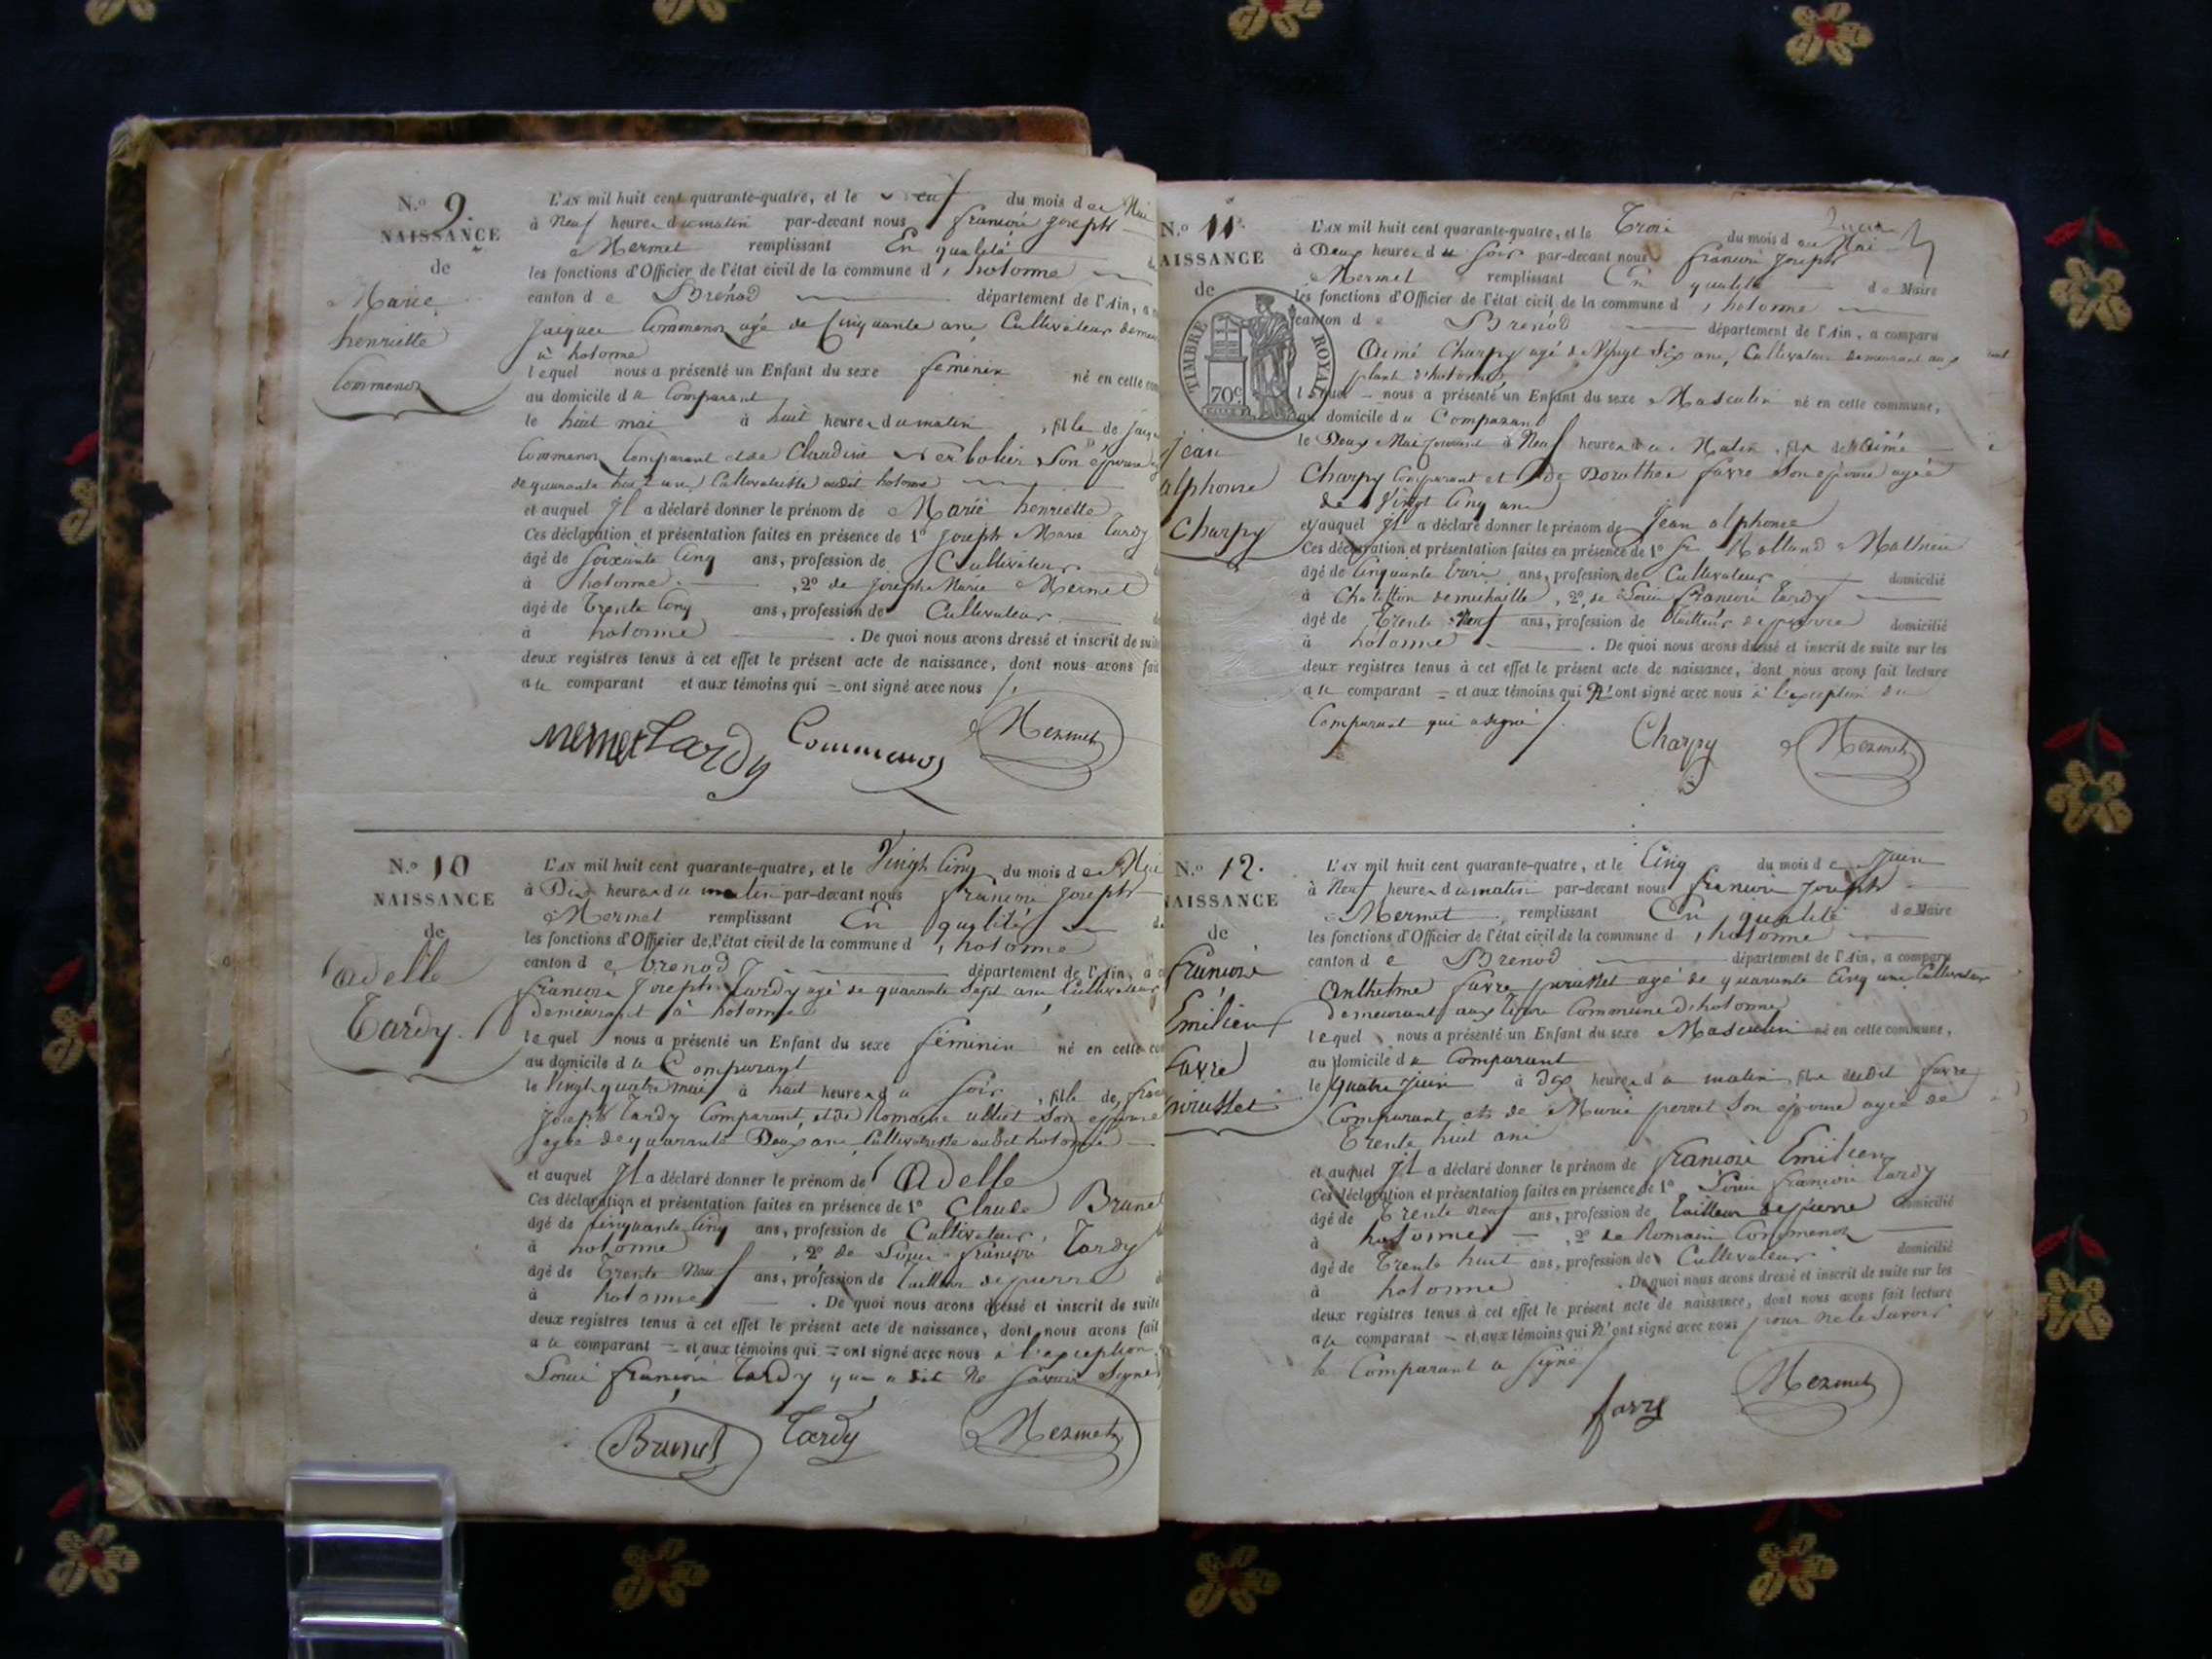 N.o 9.
NAISSANCE
de
Marie
henriette
Commenoz
L'AN mil huit cent quarante-quatre, et le neuf du mois de Mai
à Neuf heures du matin par-devant nous françois joseph
Mermet remplissant En qualité
les fonctions d'Officier de l'état civil de la commune d'hotonne
canton de Brénod département de l'Ain, a
jacques Commenoz agé de Cinquante ans Cultivateur
à hotonne
lequel nous a présenté un Enfant du sexe feminin né en cette
au domicile du Comparant
le huit mai à huit heures du matin, fille de
Commenoz Comparant et de Claudine son épouse
de quarante ans Cultivatrice audit hotonne
et auquel Il a déclaré donner le prénom de Marie henriette
Ces déclaration et présentation faites en présence de 1º joseph Marie tardy
âgé de soixante Cinq ans, profession de Cultivateur
à hotonne, 2º de joseph Marie Mermet
âgé de trente Cinq ans, profession de Cultivateur
à hotonne. De quoi nous avons dressé et inscrit de suite
deux registres tenus à cet effet le présent acte de naissance, dont nous avons fait
au comparant et aux témoins qui ont signé avec nous
mermet Tardy Commenoz Mermet
N.o 10
NAISSANCE
de
Adelle
Tardy.
L'AN mil huit cent quarante-quatre, et le Vingt Cinq du mois de Mai
à Dix heures du matin par-devant nous françois joseph
Mermet remplissant En qualité
les fonctions d'Officier de l'état civil de la commune d'hotonne
canton de brenod département de l'Ain, a
francois joseph tardy agé de quarante sept ans Cultivateur
demeurant à hotonne
lequel nous a présenté un Enfant du sexe féminin né en cette
au domicile du Comparant
le Vingt quatre mai à huit heures du soir, fille de
joseph tardy Comparant, et de Romaine son épouse
agée de quarante Deux ans Cultivatrice audit hotonne
et auquel Il a déclaré donner le prénom de Adelle
Ces déclaration et présentation faites en présence de 1º Claude Brunet
âgé de Cinquante Cinq ans, profession de Cultivateur
à hotonne, 2º de Louis françois Tardy
âgé de trente Neuf ans, profession de tailleur de pierre
à hotonne. De quoi nous avons dressé et inscrit de suite
deux registres tenus à cet effet le présent acte de naissance, dont nous avons fait
au comparant et aux témoins qui ont signé avec nous à l'exception
Louis françois tardy qui a dit Ne savoir Signer
Brunet Tardy Mermet
N.o 11
AISSANCE
de
TIMBRE ROYAL
70c
jean
alphonse
Charpy
L'AN mil huit cent quarante-quatre, et le Trois du mois de Mai
à Deux heures du soir par-devant nous francois joseph
Mermet remplissant En qualité de Maire
les fonctions d'Officier de l'état civil de la commune d'hotonne
canton de Brénod département de l'Ain, a comparu
Aimé Charpy agé de Vingt Six ans, Cultivateur demeurant aux
plans d'hotonne
lequel nous a présenté un Enfant du sexe Masculin né en cette commune,
au domicile du Comparant
le Deux Mai courant à Neuf heures du Matin, fils de Aimé
Charpy Comparant et de Dorothée favre son épouse agée
de Vingt Cinq ans
et auquel Il a déclaré donner le prénom de jean alphonse
Ces déclaration et présentation faites en présence de 1º Rolland Mathieu
âgé de Cinquante trois ans, profession de Cultivateur domicilié
à Chatillon de michaille, 2º de Louis françois tardy
âgé de trente Neuf ans, profession de tailleur de pierre domicilié
à hotonne. De quoi nous avons dressé et inscrit de suite sur les
deux registres tenus à cet effet le présent acte de naissance, dont nous avons fait lecture
au comparant et aux témoins qui N'ont signé avec nous à l'exception du
Comparant qui a signé
Charpy Mermet
N.o 12.
AISSANCE
de
françois
Emilien
favre
L'AN mil huit cent quarante-quatre, et le Cinq du mois de juin
à Neuf heures du matin par-devant nous françois joseph
Mermet remplissant En qualité de Maire
les fonctions d'Officier de l'état civil de la commune d'hotonne
canton de Brenod département de l'Ain, a comparu
Anthelme favre agé de quarante Cinq ans Cultivateur
demeurant aux Commune d'hotonne
lequel nous a présenté un Enfant du sexe Masculin né en cette commune,
au domicile du Comparant
le quatre juin à dix heures du matin, fils dudit favre
Comparant et de Marie perret son épouse agée de
Trente huit ans
et auquel Il a déclaré donner le prénom de françois Emilien
Ces déclaration et présentation faites en présence de 1º Louis françois tardy
âgé de Trente neuf ans, profession de tailleur de pierre domicilié
à hotonne, 2º de Romain Commenoz
âgé de Trente huit ans, profession de Cultivateur domicilié
à hotonne. De quoi nous avons dressé et inscrit de suite sur les
deux registres tenus à cet effet le présent acte de naissance, dont nous avons fait lecture
au comparant et aux témoins qui N'ont signé avec nous pour ne le savoir
le Comparant a signé
favre Mermet